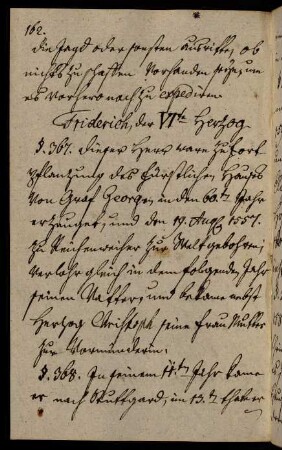 162.
die Jagd oder sonsten ausritte, ob
nichts zu schaffen vorhanden seye, um
es vorhero noch zu expediren.
Friderich, der VIte Herzog
§. 367. Dieser Herr ware zu Fort
pflanzung des Fürstlichen Hauses
von Graf Georgen in den 60.ten Jahr
erzeuget, und den 19. Aug. 1557.
zu Reichenweiher zur Welt gebohren;
verlohr gleich in dem folgenden Jahr
seinen Vatter, und bekame nebst
Herzog Christoph seine Frau Mutter
zur Vormünderin.
§. 368. In seinem 11.ten Jahr kame
er nach Stuttgard, im 13.ten thate er